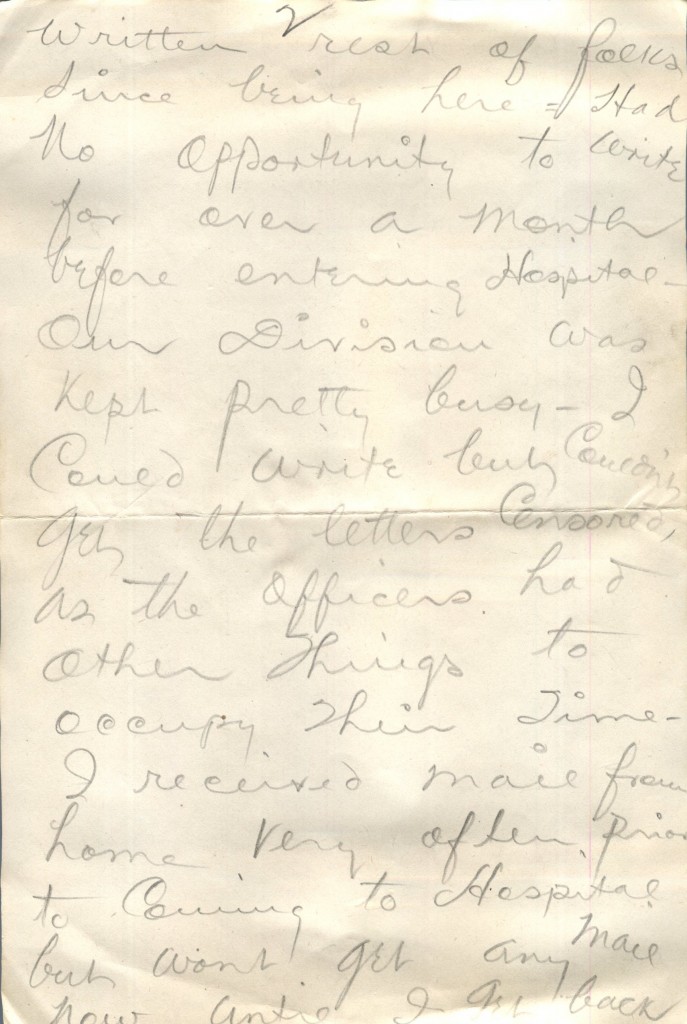 2
Written rest of folks
Since being here = Had
No opportunity to write
for over a month
before entering Hospital -
Our Division was
Kept pretty busy - I
Could write but Couldn't
get the letters Censored,
as the officers had
other things to
occupy their Time -
I received mail from
home very often, prior
to Coming to Hospital
but wont get any mail
now until I get back